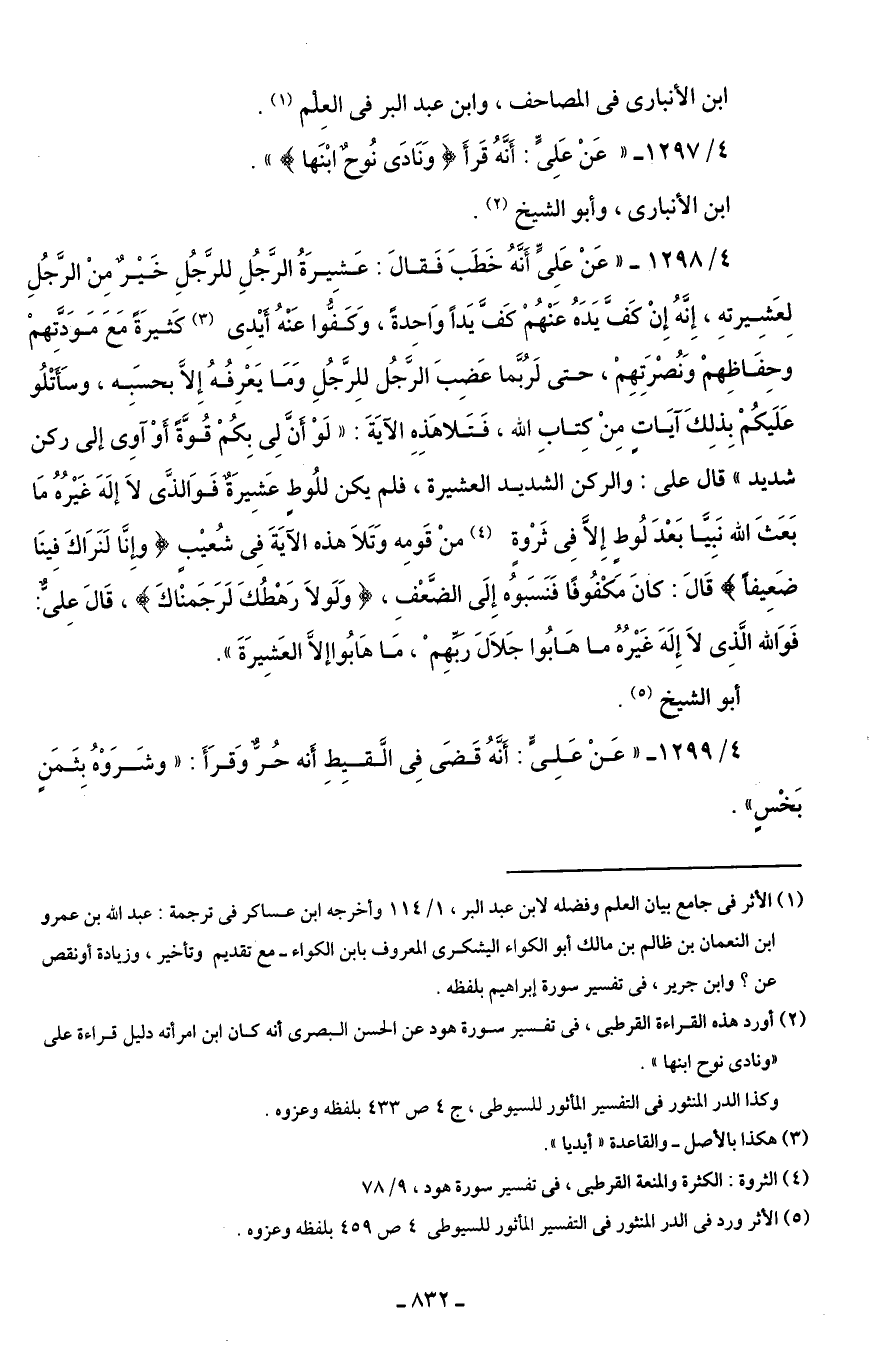 ابن الأنبارى فى المصاحف ، وابن عبد البر فى العِلْم (١) .
٤/ ١٢٩٧ـ « عَنْ عَلِىٍّ : أَنَّهُ قَرَأَ ﴿ وَنَادَى نُوحٌ ابْنَها ﴾ » .
ابن الأنبارى ، وأبو الشيخ (٢) .
٤/ ١٢٩٨ ـ « عَنْ عَلِىٍّ أَنَّهُ خَطَبَ فَـقالَ : عَـشِيـرَةُ الرَّجُلِ للرَّجُلِ خَيْـرٌ مِنْ الرَّجُلِ
لِعَشِـيرتِهِ ، إِنَّهُ إِنْ كَفَّ يَدَهُ عَنْهُمْ كَفَّ يَداً وَاحِدةً ، وَكَـفُّوا عَنْهُ أَيْدِى (٣) كَثـيرَةً مَعَ مَـوَدَّتِهِمْ
وحِفَـاظِهمْ وَنُصْرَتِهِمْ ، حـتى لَرُبَّما غضِبَ الرَّجُلُ للرَّجُلِ وَمَا يَعْرِفُـهُ إلاَّ بحسَبِـه ، وسَأَتْلُو
عَلَيكُمْ بِذلِكَ آيَـاتٍ مِنْ كِتـابِ الله ، فَـتَـلاهَذِهِ الآيَةَ : « لَوْ أَنَّ لِى بِكُمْ قُـوَّةً أَوْ آوى إلى ركن
شديد » قال على : والركن الشديـد العشيرة ، فلم يكن للُوطٍ عَشِيرَةٌ فَـوَالذَّى لاَ إلَهَ غَيْرُهُ مَا
بَعَثَ الله نَبِيَّـا بَعْدَ لُوطٍ إلاَّ فِى ثَرْوةٍ (٤) منْ قومِه وَتَلاَ هذه الآيَةَ فِى شُعَيْبٍ ﴿ وإنَّا لَنَرَاكَ فِينَا
ضَعِيفاً ﴾ قَالَ : كانَ مَكْفُوفًا فَنَسَبوهُ إلَى الضَّعْف ، ﴿ وَلَولاَ رَهْطُكَ لَرَجَمناكَ ﴾ ، قَالَ عَلِىٌّ:
فَوَالله الَّذِى لاَ إِلَهَ غَيْرُهُ مـا هَـابُوا جَلاَلَ رَبِّهِم ْ ، مَـا هابُواإلاَّ العَشِيرَةَ ».
أبو الشيخ (٥) .
٤/ ١٢٩٩ـ « عَـنْ عَـلِـىٍّ : أَنَّهُ قَـضَى فِى الَّـقـيـطِ أنه حُـرٌّ وَقَـرأَ : « وشَـرَوْهُ بِثَـمَنٍ
بَخْسٍ» .
(١) الأثر فى جامع بيان العلم وفضله لابن عبد البر ، ١/ ١١٤ وأخرجه ابن عـساكر فى ترجمة : عبد الله بن عمرو
ابن النعمان بن ظالم بن مالك أبو الكواء اليشكـرى المعروف بابن الكواء ـ مع تقديم وتأخير ، وزيادة أونقص
عن ؟ وابن جرير ، فى تفسير سورة إبراهيم بلفظه .
(٢) أورد هذه القـراءة القرطبى ، فى تفـسير سـورة هود عن الحسن الـبصرى أنه كـان ابن امرأته دليل قـراءة على
«ونادى نوح ابنها » .
وكذا الدر المنثور فى التفسير المأثور للسيوطى ، ج ٤ ص ٤٣٣ بلفظه وعزوه .
(٣) هكذا بالأصل ـ والقاعدة « أيديا ».
(٤) الثروة : الكثرة والمنعة القرطبى ، فى تفسير سورة هود ، ٩/ ٧٨
(٥) الأثر ورد فى الدر المنثور فى التفسير المأثور للسيوطى ٤ ص ٤٥٩ بلفظه وعزوه .
ـ ٨٣٢ ـ